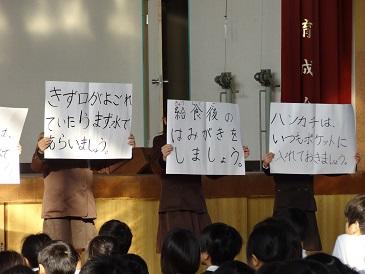 育成会
きず口がよごれ
ていたらまず水で
あらいましょう。
給食後の
はみがきを
しましょう。
ハンカチは、
いつもポケットに
入れておきましょう。
は、